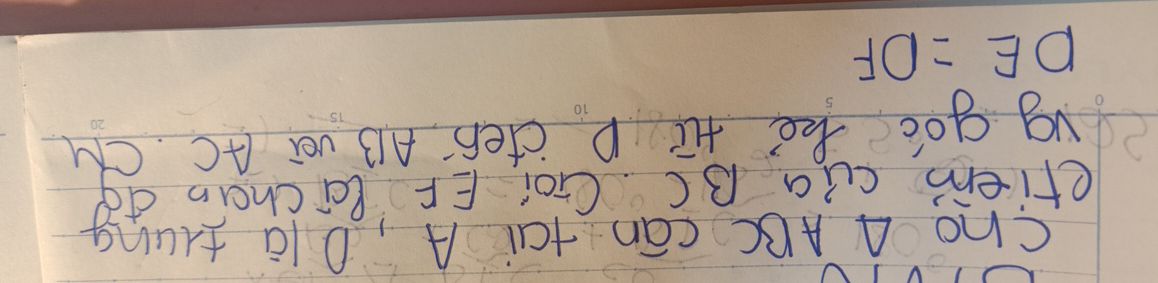 Cho Δ ABC cân tại A, D là trung
điểm của BC. Gọi EF là chân đg
vg góc kẻ từ D đến AB với AC. CM
DE = DF
0 5 10 15 20